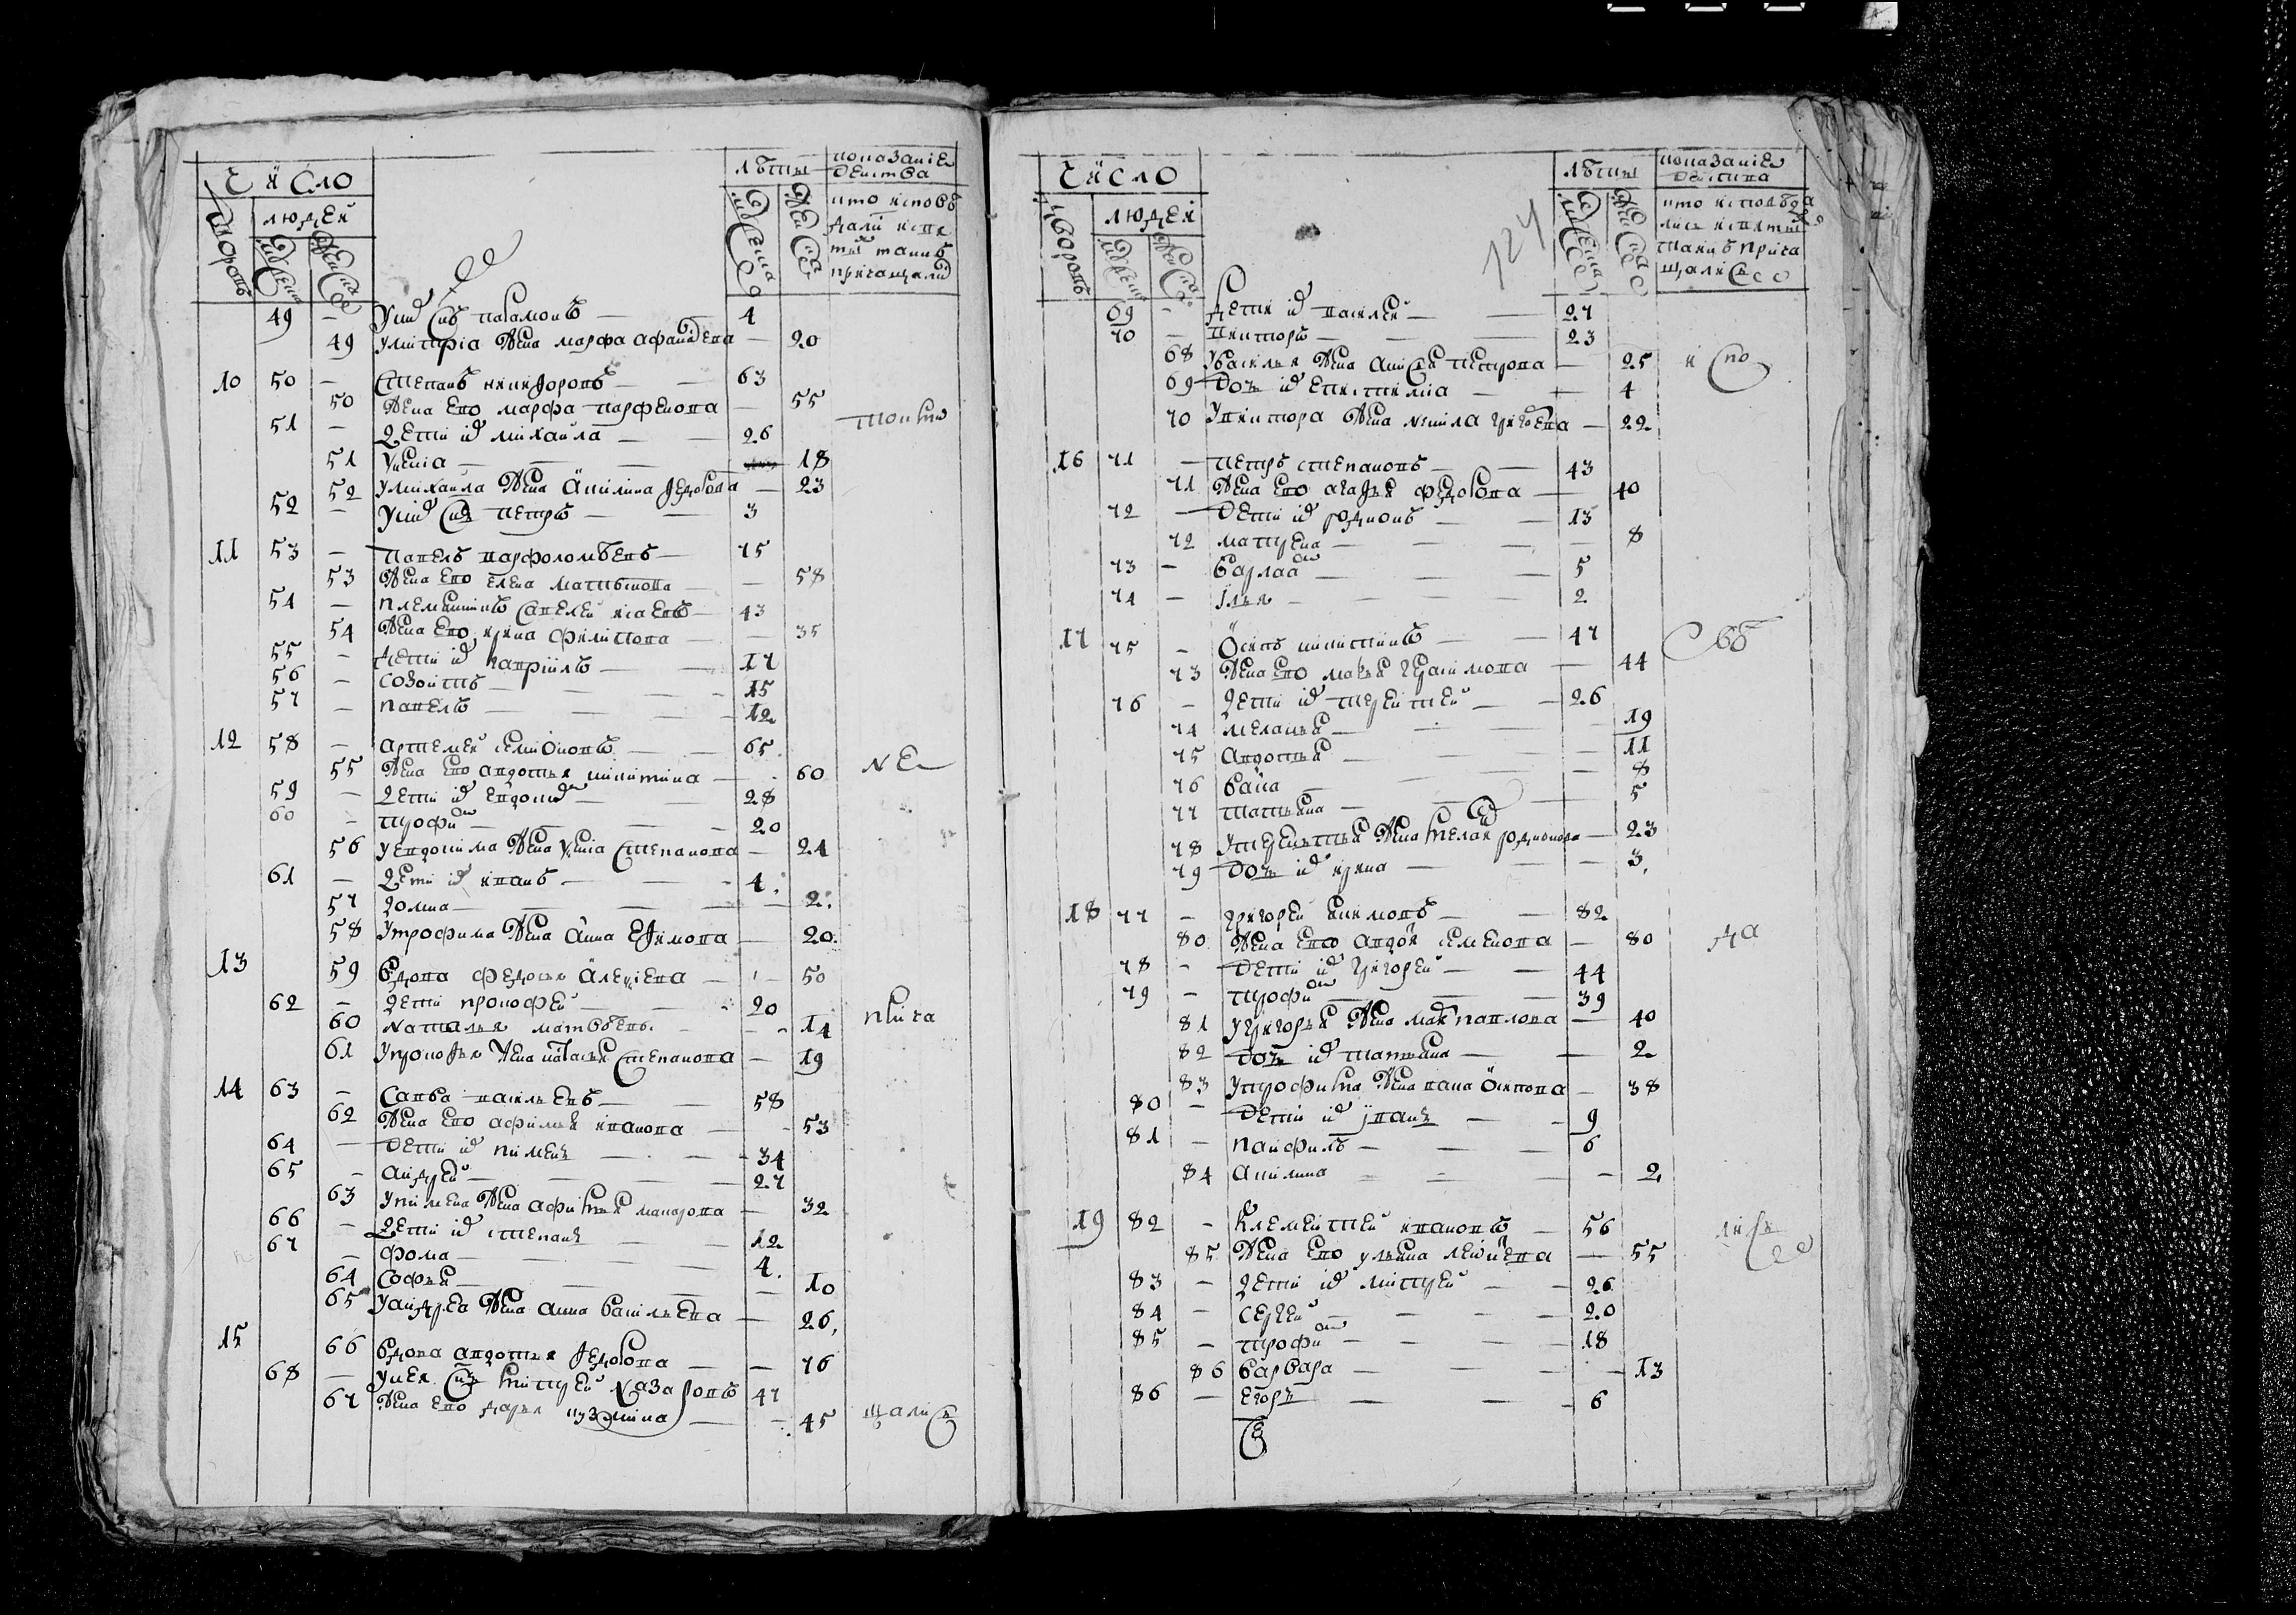 Число
лѣты
показание действа
дворовъ
людей
мужеска
женска
мужеска
женска
кто исповѣ
дали и свя
тыхъ таинъ
причащали
49 — У нихъ сн҃ъ парамонъ — 4
49 у митриа жена марфа афанасева — 20
10 50 — Степанъ никифоровъ — 63
50 Жена ево марфа парфенова — 55
токмо
51 — Дети их михаила — 26
51 Ксениа — 18
52 У михаила жена Акилина федорова — 23
52 — У них сн҃ъ петръ — 3
11 53 — Павелъ варфоломѣевъ — 75
53 Жена ево елена матвѣова — 58
54 — племянникъ савелей исаевъ — 43
54 Жена ево ирина филипова — 35
55 — Дети их гавриилъ — 17
56 — созонтъ — 15
57 — павелъ — 12
12 58 — артемей семионовъ — 65
55 Жена ево авдотья никитина — 60
не
59 — Дети их евдоким — 28
60 — трофим — 20
56 У евдокима жена ксения степанова — 24
61 — Дети их иванъ — 4
57 домна — 2
58 У трофима жена Анна ефимова — 20
13 59 Вдова федосья Алексиева — 50
62 — Дети прокофей — 20
60 наталья матвѣева — 14
прича
61 У прокофья жена наталья степанова — 19
14 63 — Савва васильевъ — 58
62 Жена ево афимья иванова — 53
64 — Дети их пимен — 34
65 — андрей — 27
63 У пимена жена афимья макарова — 32
66 — Дети их степанъ — 12
67 — фома — 4
64 софья — 10
65 У андреа жена анна васильева — 26
15 66 Вдова авдотья федорова — 76
68 — У нея сн҃ъ митрей назаровъ 47
67 Жена ево дарья кузмина — 45
щались
Число
лѣты
показание действа
124
дворовъ
людей
мужеска
женска
мужеска
женска
кто исповѣда
лись и святых
таинъ прича
щались
69 — Дети их василей — 27
70 — викторъ — 23
68 У василья жена анисья петрова — 25
испо
69 Дочь их епистимиа — 4
70 У виктора жена ненила григорева — 22
16 71 — петръ степановъ — 43
71 Жена ево агафья федорова — 40
72 — Дети их родионъ — 13
72 матрена — 8
73 — варлаам — 5
74 — Илья — 2
17 75 — Осипъ никитинъ — 47
вѣ
73 Жена ево марья герасимова — 44
76 — Дети их терентей — 26
74 меланья — 19
75 авдотья — 11
76 васса — 8
77 татьяна — 5
78 У терентья жена пелагея родионова — 23
79 Дочь их ирина — 3
18 77 — Григорей екимовъ — 82
80 Жена ево авдотья семенова — 80
да
78 — Дети их григорей — 44
79 — трофим — 39
81 У григорья жена мавра павлова — 40
82 Дочь их татьяна — 2
83 У трофима жена анна Осипова — 38
80 — Дети их иванъ — 9
81 — панфилъ — 6
84 акилина — 2
19 82 — Клементей ивановъ — 56
лись
85 Жена ево ульяна леонтева — 55
83 — Дети их митрей — 26
84 — сергей — 20
85 — трофим — 18
86 варвара — 13
86 — егоръ — 6